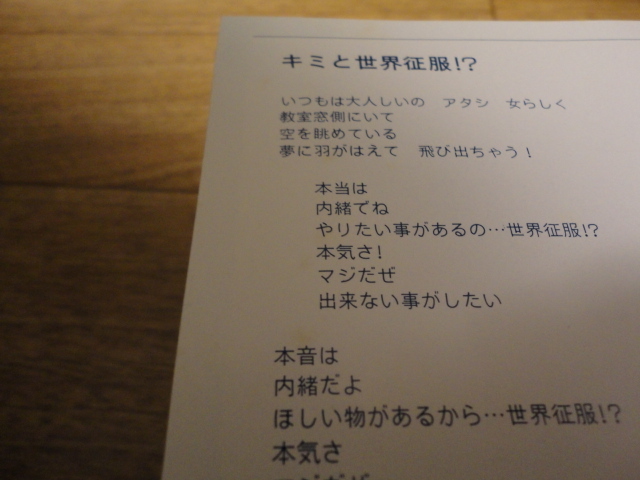 キミと世界征服!?
いつもは大人しいの　アタシ　女らしく
教室窓側にいて
空を眺めている
夢に羽がはえて　飛び出ちゃう！
本当は
内緒でね
やりたい事があるの…世界征服!?
本気さ!
マジだぜ
出来ない事がしたい
本音は
内緒だよ
ほしい物があるから…世界征服!?
本気さ